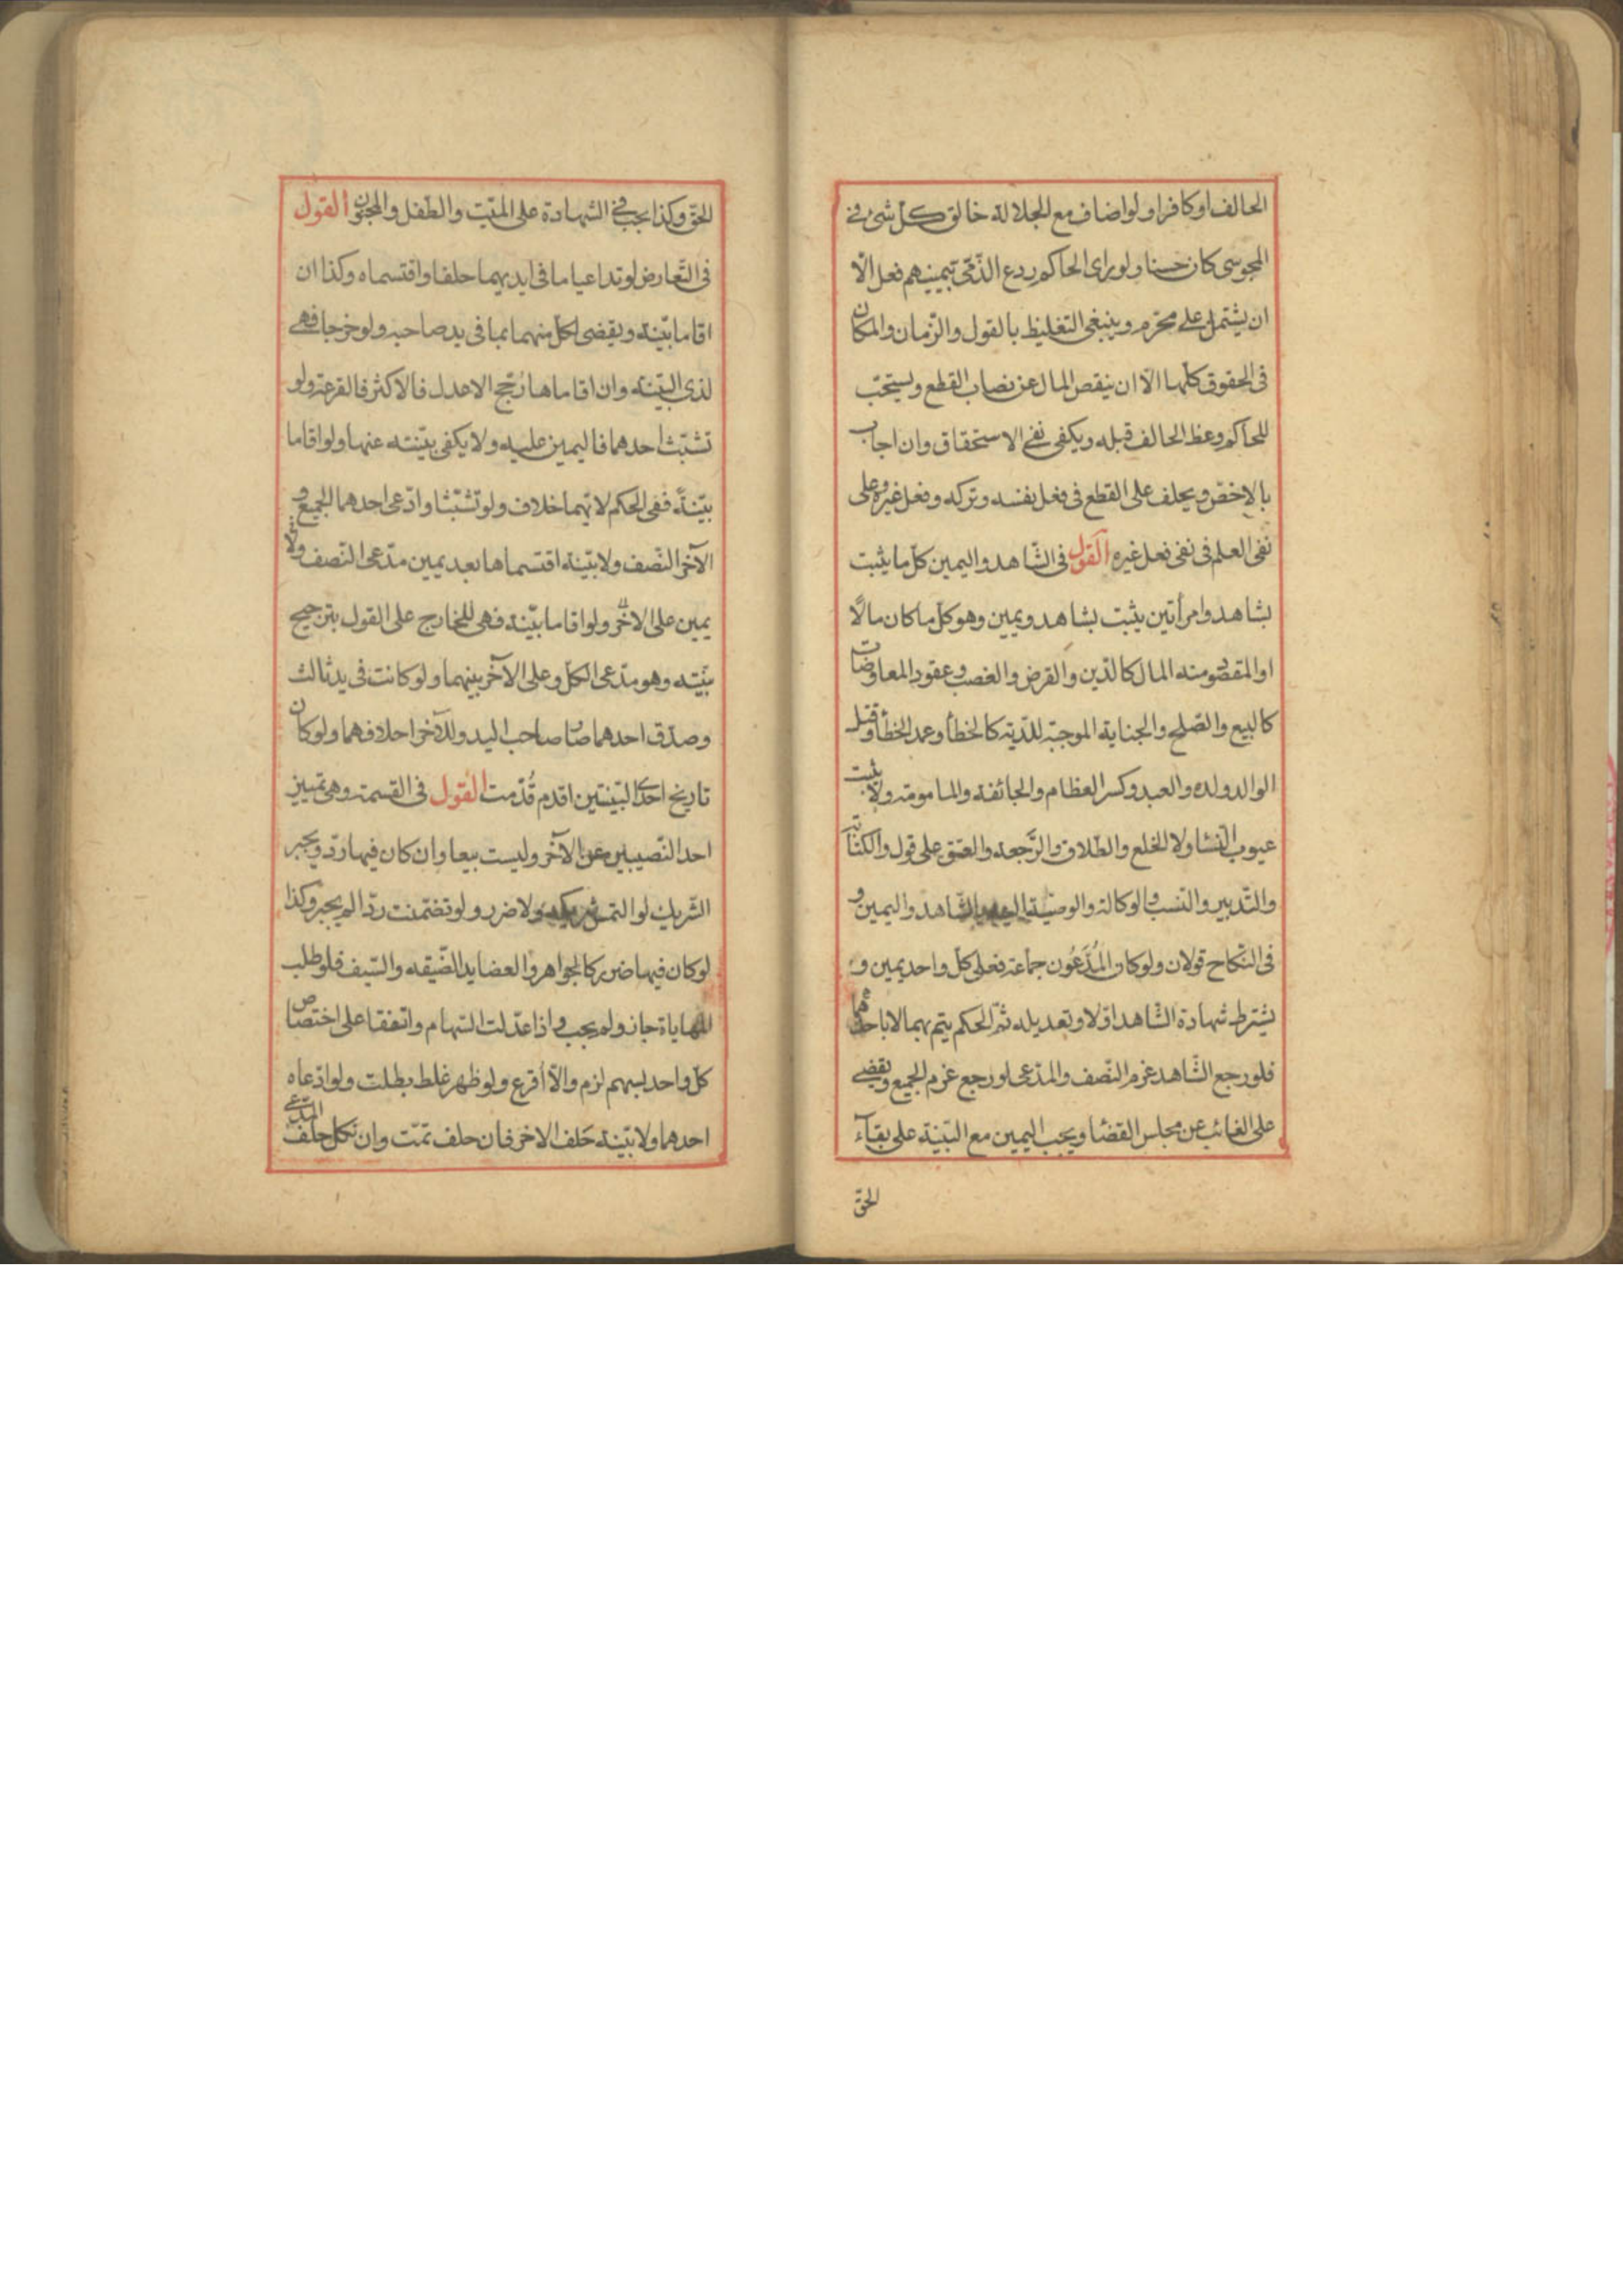 الحالف او كافرا ولو اضاف مع الجلالة خالق كل شىء فى
المجوسى كان حسنا ولو راى الحاكم ردع الذمّى بيمينهم فعل الّا
ان يشتمل على محرّم وينبغى التغليظ بالقول والزّمان والمكان
فى الحقوق كلّها الّا ان ينقص المال عن نصاب القطع ويستحبّ
للحاكم وعظ الحالف قبله ويكفى نفى الاستحقاق وان اجاب
بالاخصّ ويحلف على القطع فى فعل نفسه وتركه وفعل غيره وعلى
نفى العلم فى نفى فعل غيره القول فى الشّاهد واليمين كلّ ما يثبت
بشاهد وامرأتين يثبت بشاهد ويمين وهو كلّ ما كان مالًا
او المقصود منه المال كالدّين والقرض والغصب وعقود المعاوضات
كالبيع والصّلح والجناية الموجبة للدّية كالخطأ وعمد الخطأ وقتل
الوالد ولده والعبد وكسر العظام والجائفة والمامومة ولا يثبت
عيوب النّسا ولا الخلع والطّلاق والرّجعة والعتق على قول والكتابة
والتّدبير والنّسب والوكالة والوصيّة اليه بالشّاهد واليمين و
فى النّكاح قولان ولو كان المُدَّعُون جماعة فعلى كلّ واحد يمين و
يشترط شهادة الشّاهد اوّلا وتعديله ثمّ الحكم يتم بهما لا باحدهما
فلو رجع الشّاهد غرم النّصف والمدّعى لو رجع غرم الجميع ويقضى
على الغائب عن مجلس القضا ويجب اليمين مع البيّنة على بقآء
الحقّ
الحقّ وكذا يجب فى الشّهادة على الميّت والطّفل والمجنون القول
فى التّعارض لو تداعيا ما فى ايديهما حلفا واقتسماه وكذا ان
اقاما بيّنة ويقضى لكلّ منهما بما فى يد صاحبه ولو خرجا فهى
لذى البيّنة وان اقاماها رُجّح الاعدل فالاكثر فالقرعة ولو
تشبّث احدهما فاليمين عليه ولا يكفى بيّنته عنها ولو اقاما
بيّنةً ففى الحكم لايّهما خلاف ولو تشبّثا وادّعى احدهما الجميع و
الآخر النّصف ولا بيّنة اقتسماها بعد يمين مدّعى النّصف ولا
يمين على الاخر ولو اقاما بيّنة فهى للخارج على القول بترجيح
بيّنته وهو مدّعى الكلّ وعلى الآخر بينهما ولو كانت فى يد ثالث
وصدّق احدهما صار صاحب اليد وللآخر احلافهما ولو كان
تاريخ احدى البيّنتين اقدم قُدّمت القول فى القسمة وهى تمييز
احد النّصيبين عن الآخر وليست بيعا وان كان فيها ردّ ويجبر
الشّريك لو التمس شريكه ولا ضرر ولو تضمّنت ردّا لم يجبر وكذا
لو كان فيها ضرر كالجواهر والعضايد الضّيّقة والسّيف فلو طلب
المهاياة جاز ولم يجب واذا عدّلت السّهام واتّفقا على اختصاص
كلّ واحد بسهم لزم والّا أقرع ولو ظهر غلط بطلت ولو ادّعاه
احدهما ولا بيّنة حَلف الاخر فان حلف تمّت وان نكل حلف المدّعى